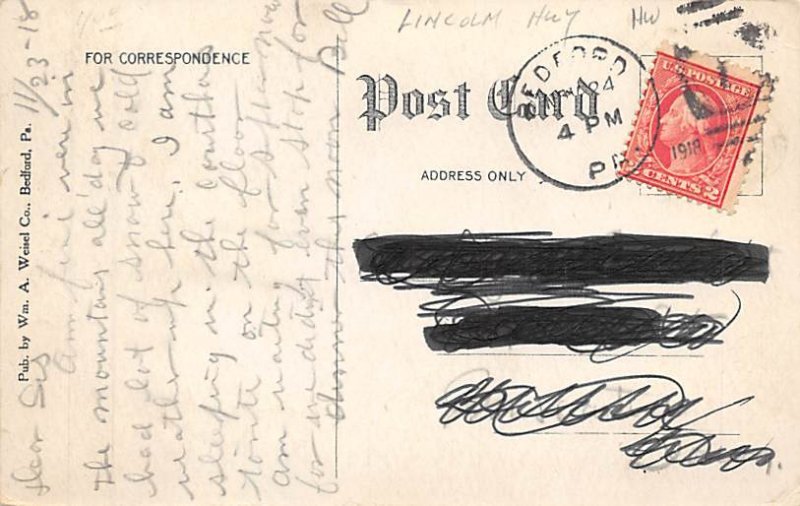 LINCOLN HWY
HW
FOR CORRESPONDENCE
Post Card
ADDRESS ONLY
BEDFORD
24
4 PM
1918
PA.
U.S. POSTAGE
CENTS 2
Pub. by Wm. A. Weisel Co., Bedford, Pa.
11/23-18
Dear Sis
Am fine were in
the mountains all day we
had lot of snow & cold
weather up here. I am
sleeping in the
tonite on the floor
am waiting for supper now
for we didn't even stop for
dinner this noon Bill